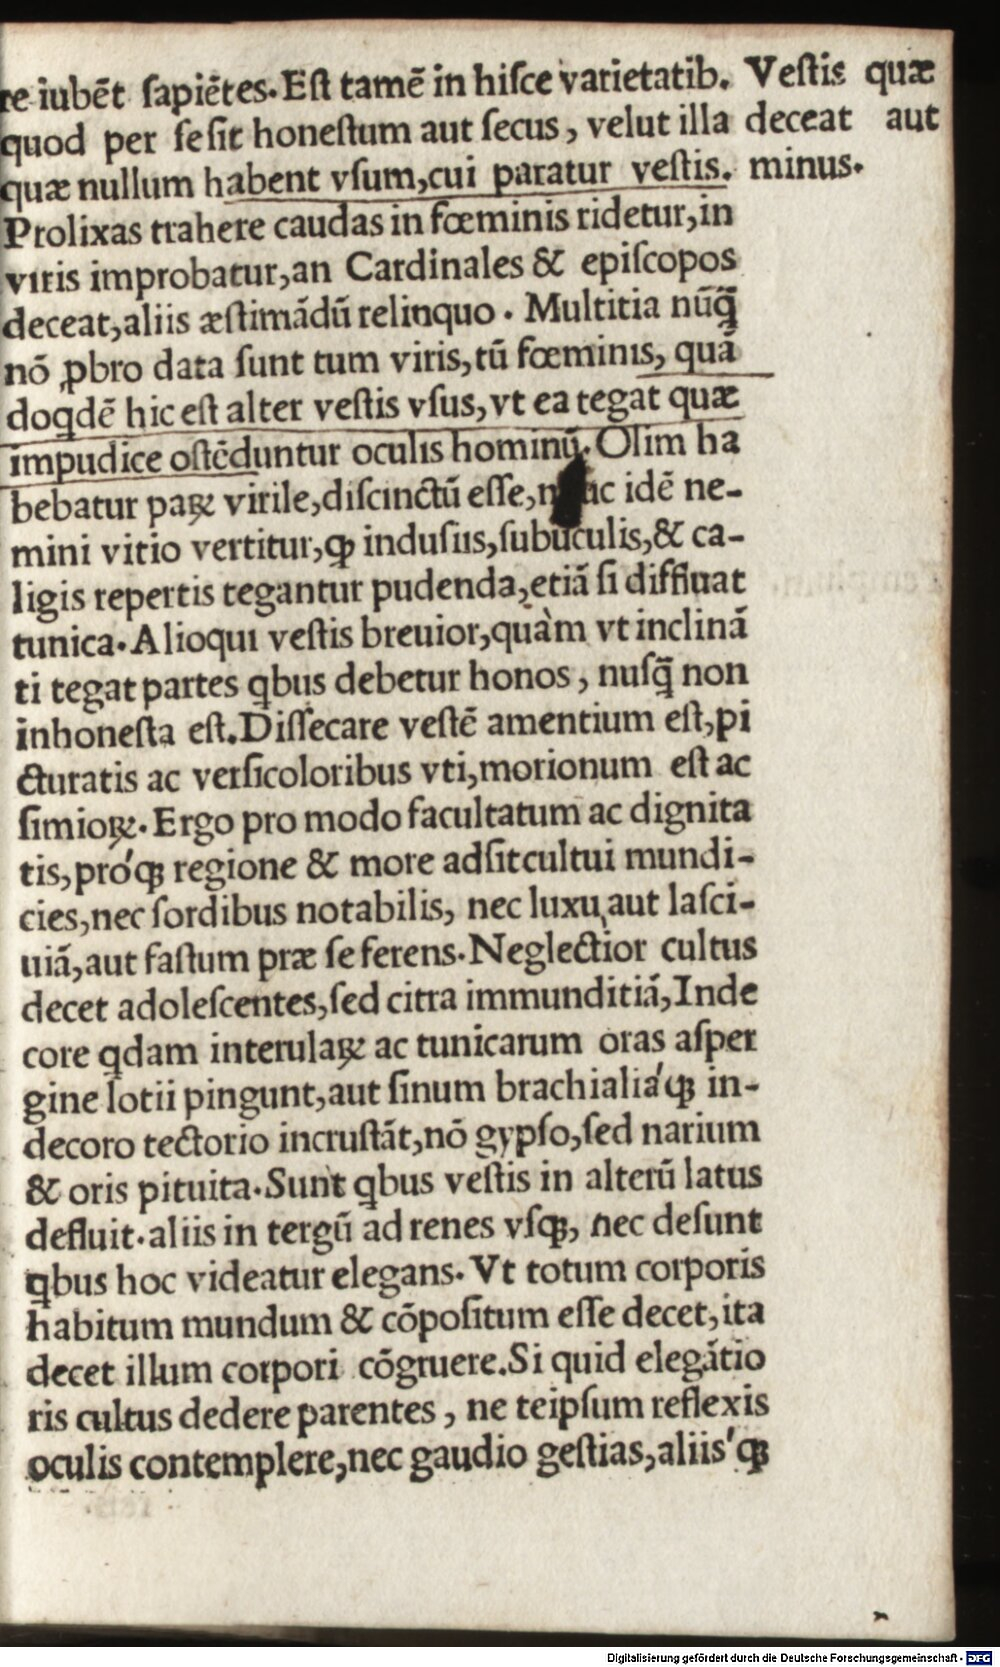 re iubēt ſapiētes. Eſt tamē in hiſce varietatib.
quod per ſe ſit honeſtum aut ſecus, velut illa
quæ nullum habent vſum, cui paratur veſtis.
Veſtis quæ
deceat aut
minus.
Prolixas trahere caudas in fœminis ridetur, in
viris improbatur, an Cardinales & epiſcopos
deceat, aliis æſtimādū relinquo. Multitia nūq̄
nō ꝓbro data ſunt tum viris, tū fœminis, quā
doqdē hic eſt alter veſtis vſus, vt ea tegat quæ
impudice oſtēduntur oculis hominū. Olim ha
bebatur paꝝ virile, diſcinctū eſſe, nunc idē ne-
mini vitio vertitur, ꝙ induſiis, ſubuculis, & ca-
ligis repertis tegantur pudenda, etiā ſi diffluat
tunica. Alioqui veſtis breuior, quàm vt inclinā
ti tegat partes qbus debetur honos, nuſq̄ non
inhoneſta eſt. Diſſecare veſtē amentium eſt, pi
cturatis ac verſicoloribus vti, morionum eſt ac
ſimioꝝ. Ergo pro modo facultatum ac dignita
tis, próꝗ regione & more adſit cultui mundi-
cies, nec ſordibus notabilis, nec luxu aut laſci-
uiā, aut faſtum præ ſe ferens. Neglectior cultus
decet adoleſcentes, ſed citra immunditiā, Inde
core qdam interulaꝝ ac tunicarum oras aſper
gine lotii pingunt, aut ſinum brachialiáꝗ in-
decoro tectorio incruſtāt, nō gypſo, ſed narium
& oris pituita. Sunt qbus veſtis in alterū latus
defluit. aliis in tergū ad renes vſꝗ, nec deſunt
qbus hoc videatur elegans. Vt totum corporis
habitum mundum & cōpoſitum eſſe decet, ita
decet illum corpori cōgruere. Si quid elegātio
ris cultus dedere parentes, ne teipſum reflexis
oculis contemplere, nec gaudio geſtias, aliis'ꝗ
Digitalisierung gefördert durch die Deutsche Forschungsgemeinschaft - DFG